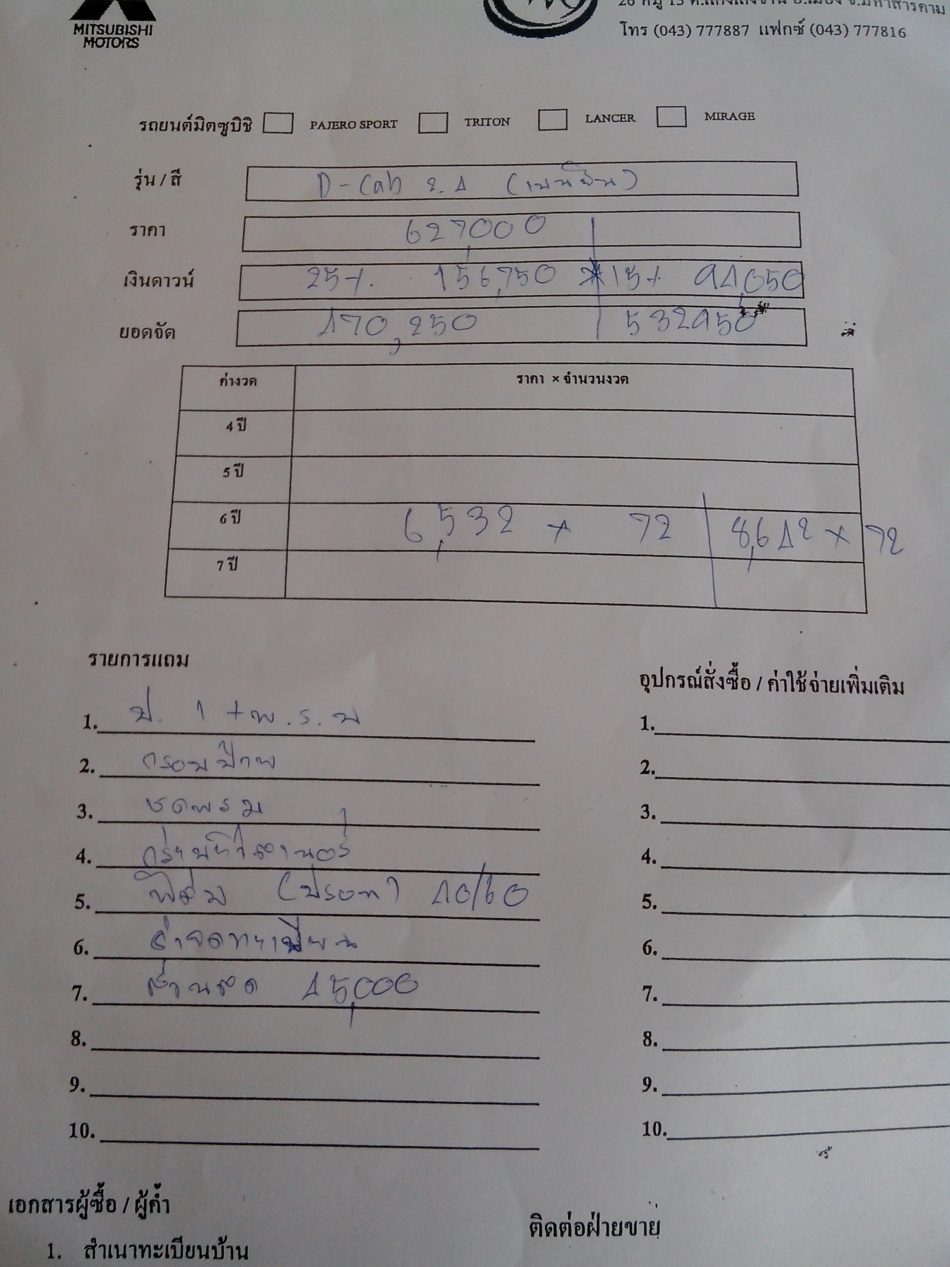 MITSUBISHI
MOTORS
โทร (043) 777887 แฟกซ์ (043) 777816
รถยนต์มิตซูบิชิ PAJERO SPORT TRITON LANCER MIRAGE
รุ่น / สี D-Cab 2.4 (เบนซิน)
ราคา 627,000
เงินดาวน์ 25% 156,750 15% 94,050
ยอดจัด 470,250 532950
ค่างวด ราคา × จำนวนงวด
4 ปี
5 ปี
6 ปี 6,532 × 72 8,642 × 72
7 ปี
รายการแถม
อุปกรณ์สั่งซื้อ / ค่าใช้จ่ายเพิ่มเติม
1. ป. 1 + พ.ร.บ 1.
2. กรอบป้าย 2.
3. ชุดพรม 3.
4. 4.
5. ฟิล์ม (ปรอท) 40/60 5.
6. ค่าจดทะเบียน 6.
7. ส่วนลด 45,000 7.
8. 8.
9. 9.
10. 10.
เอกสารผู้ซื้อ / ผู้ค้ำ
ติดต่อฝ่ายขาย
1. สำเนาทะเบียนบ้าน